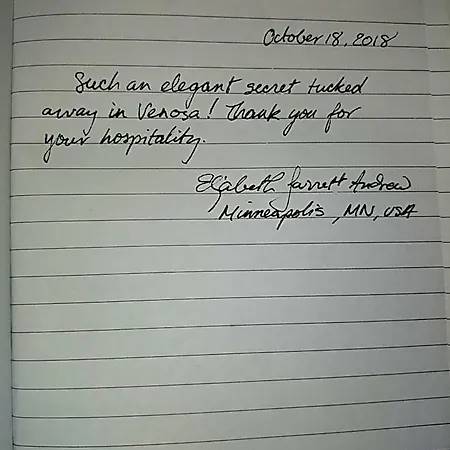 October 18, 2018
Such an elegant secret tucked
away in Venosa! Thank you for
your hospitality.
Elizabeth Jarrett Andrew
Minneapolis, MN, USA